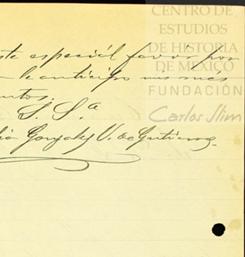 CENTRO DE
ESTUDIOS
DE HISTORIA
DE MÉXICO
FUNDACIÓN
Carlos Slim
este especial favor por
le anticipo mis más
S. S.ª
González V. de Gutierrez